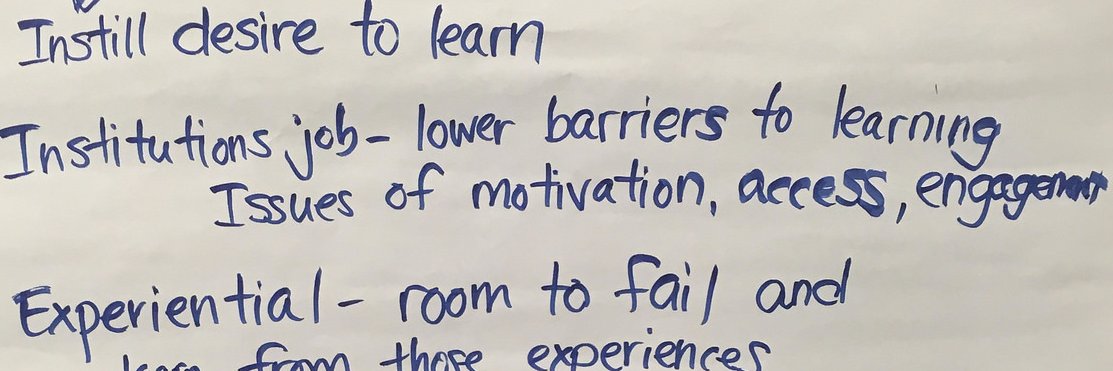 Instill desire to learn
Institutions job - lower barriers to learning
Issues of motivation, access, engagement
Experiential - room to fail and
learn from those experiences